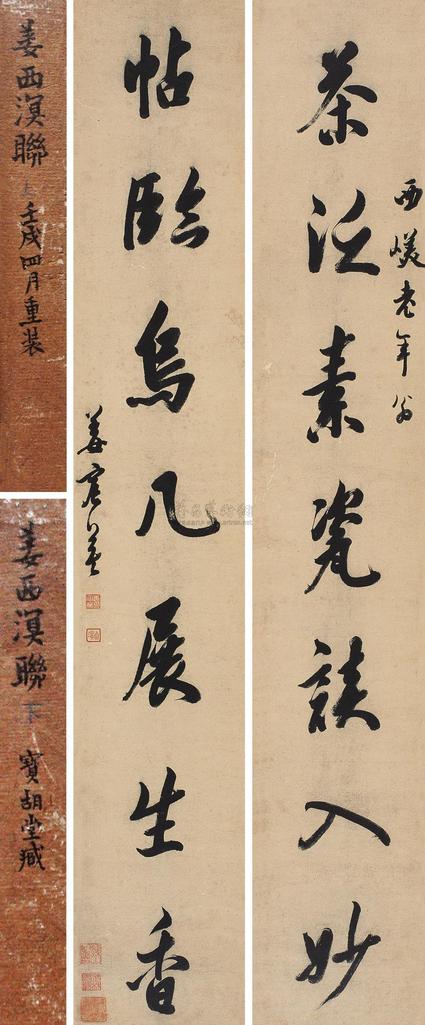 茶泛素瓷談入妙
西嵄老年翁
帖臨烏几展生香
姜宸英
姜西溟聯
上
壬戌四月重装
姜西溟聯
下
寶胡堂臧